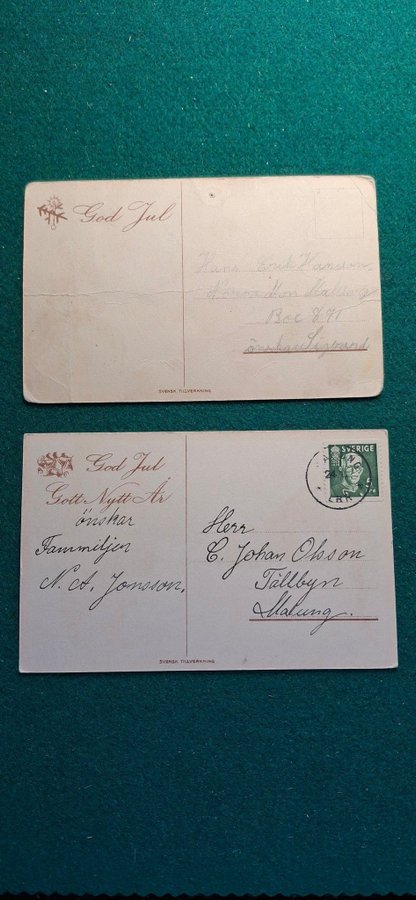 God Jul
Hans Erik Hansson
Norra Mon Malung
Box 871
önskar Sigvard
SVENSK TILLVERKNING
God Jul
Gott Nytt År
önskar
Fammiljen
N. A. Jonsson.
SVERIGE
5
24
Herr
C. Johan Olsson
Tällbyn
Malung.
SVENSK TILLVERKNING